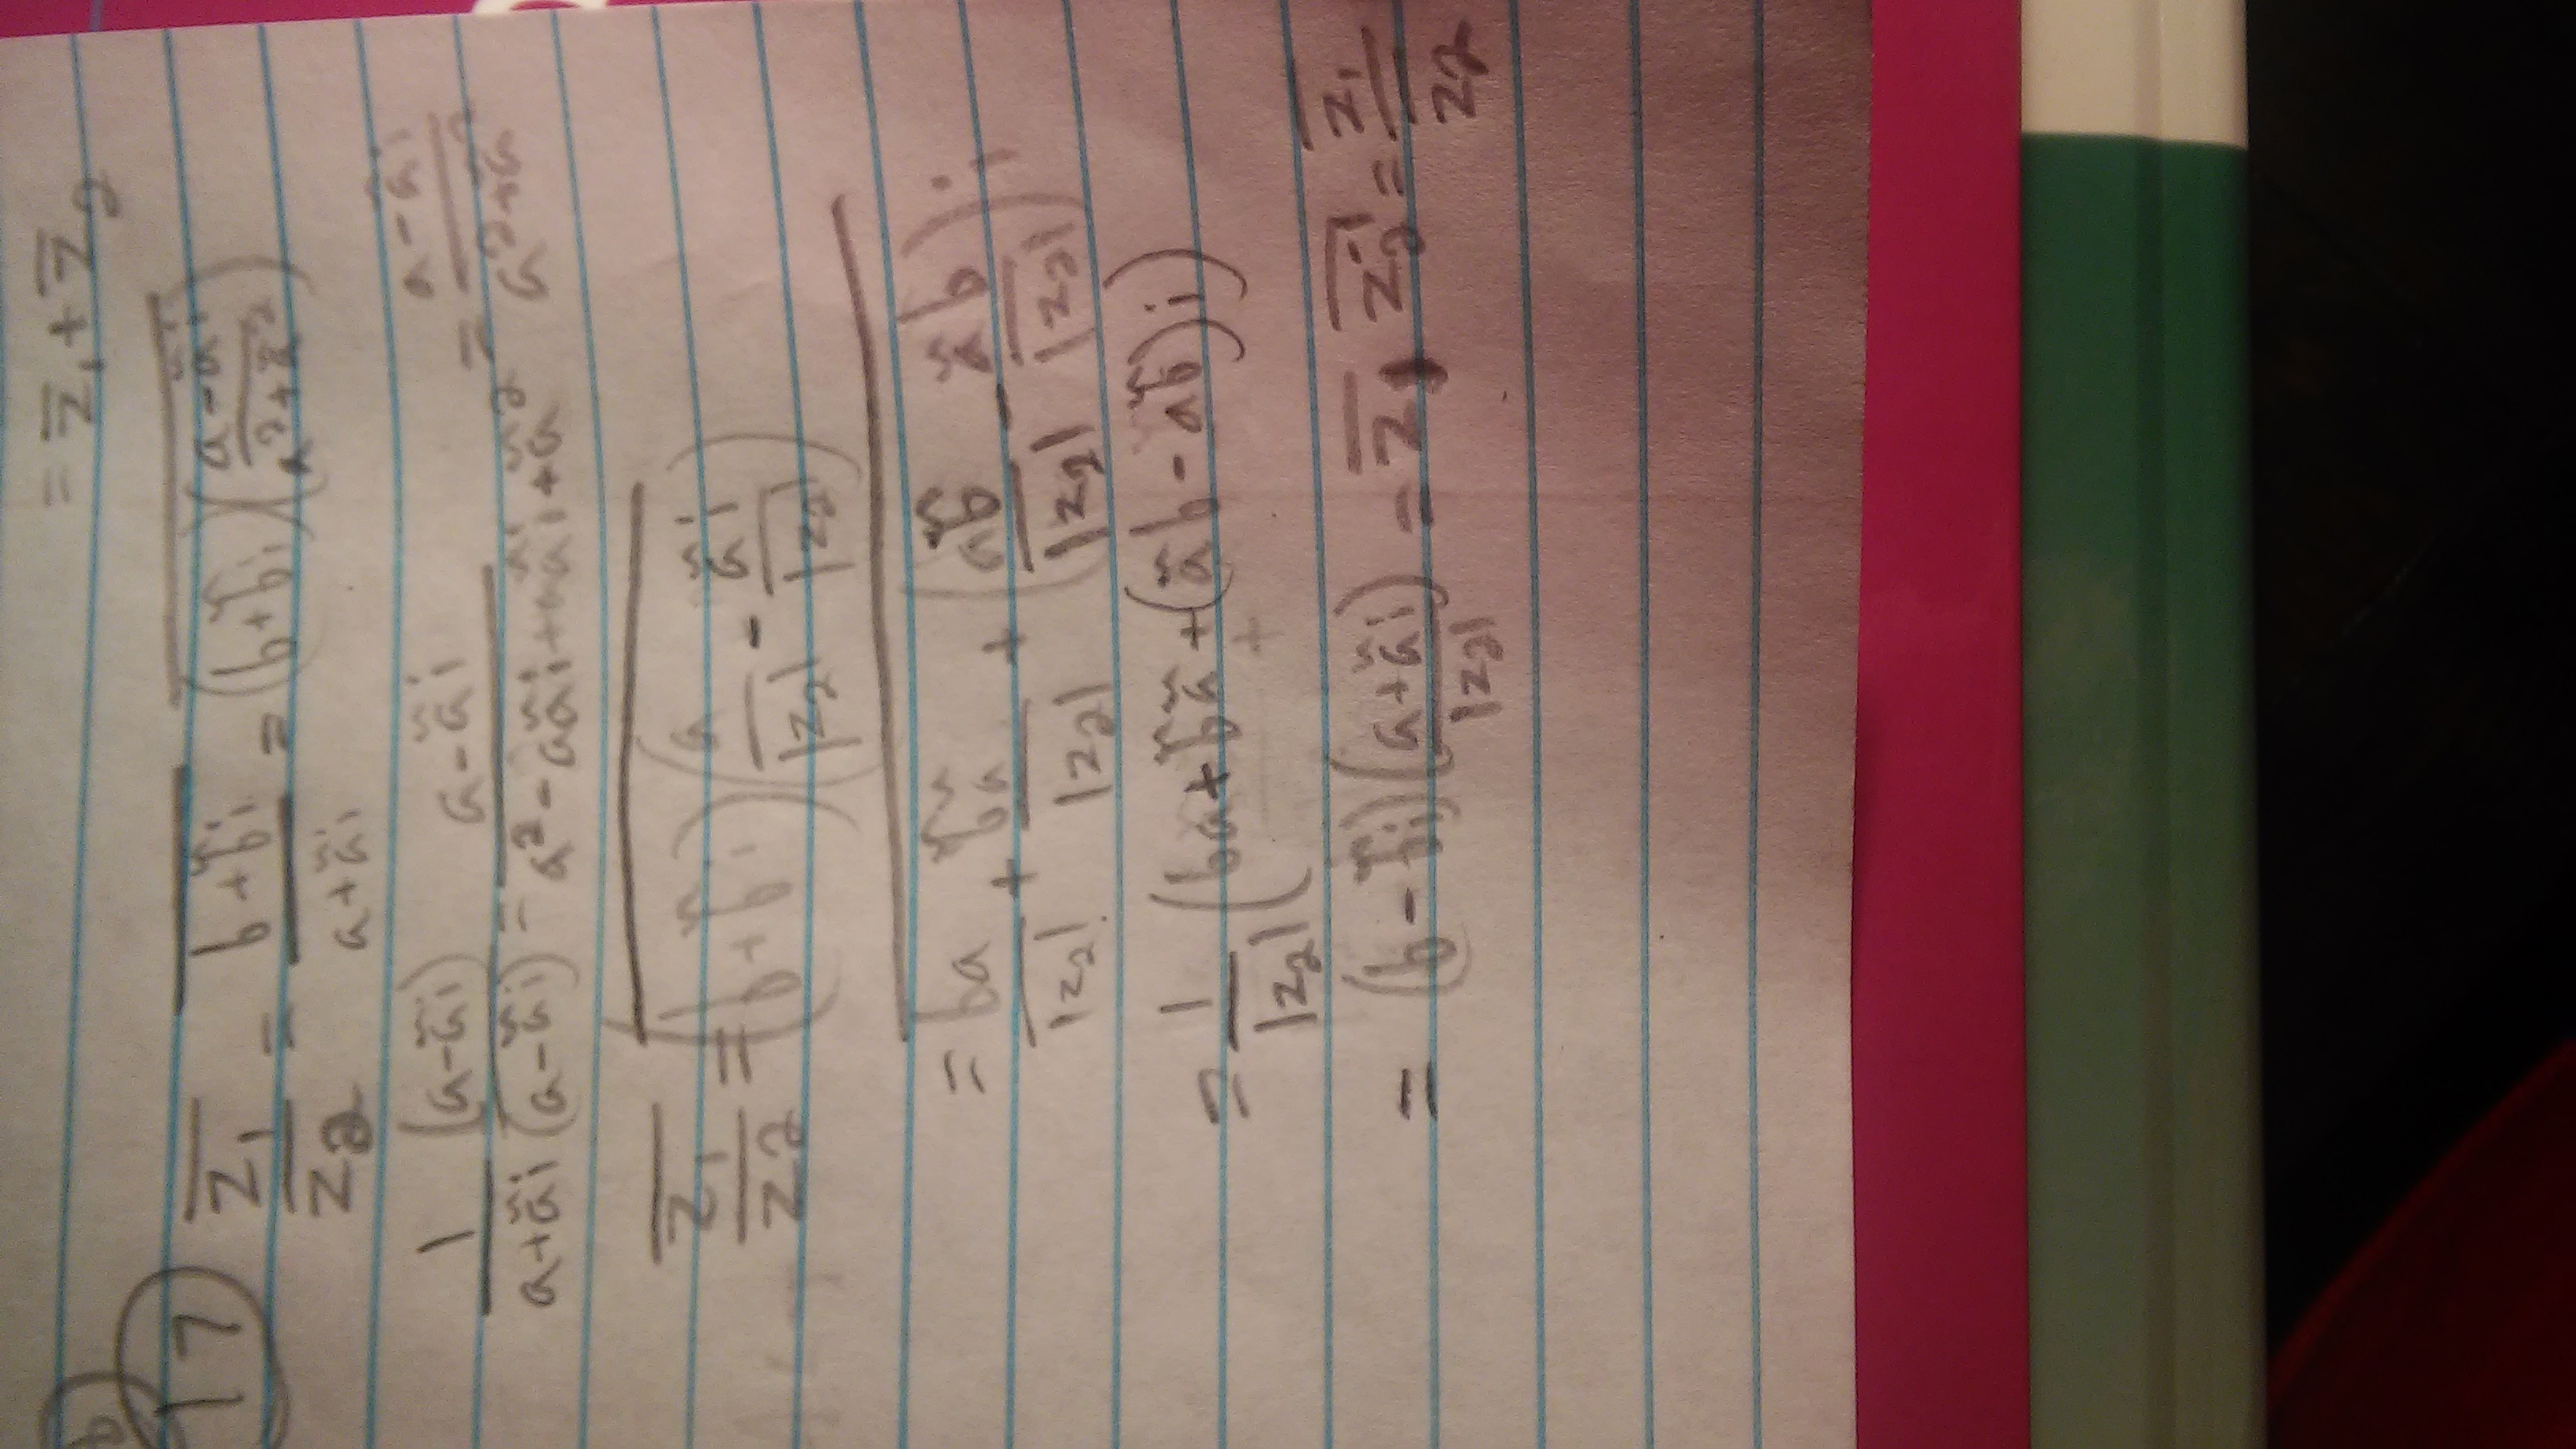 = z̄₁ + z̄₂
17 \overline{z₁/z₂} = \overline{(b+b̃i)/(a+ãi)} = \overline{(b+b̃i)((a-ãi)/(a²+ã²))}
1/(a+ãi) (a-ãi)/(a-ãi) = (a-ãi)/(a²-aãi+aãi+ã²) = (a-ãi)/(a²+ã²)
\overline{z₁/z₂} = \overline{(b+b̃i)(a/|z₂| - ãi/|z₂|)}
= \overline{ba/|z₂| + b̃ã/|z₂| + (ab̃/|z₂| - ãb/|z₂|)i}
= 1/|z₂| (ba+b̃ã+(ãb-ab̃)i)
= (b-b̃i)(a+ãi)/|z₂| = z̄₁ \overline{z₂⁻¹} = \overline{z₁/z₂}